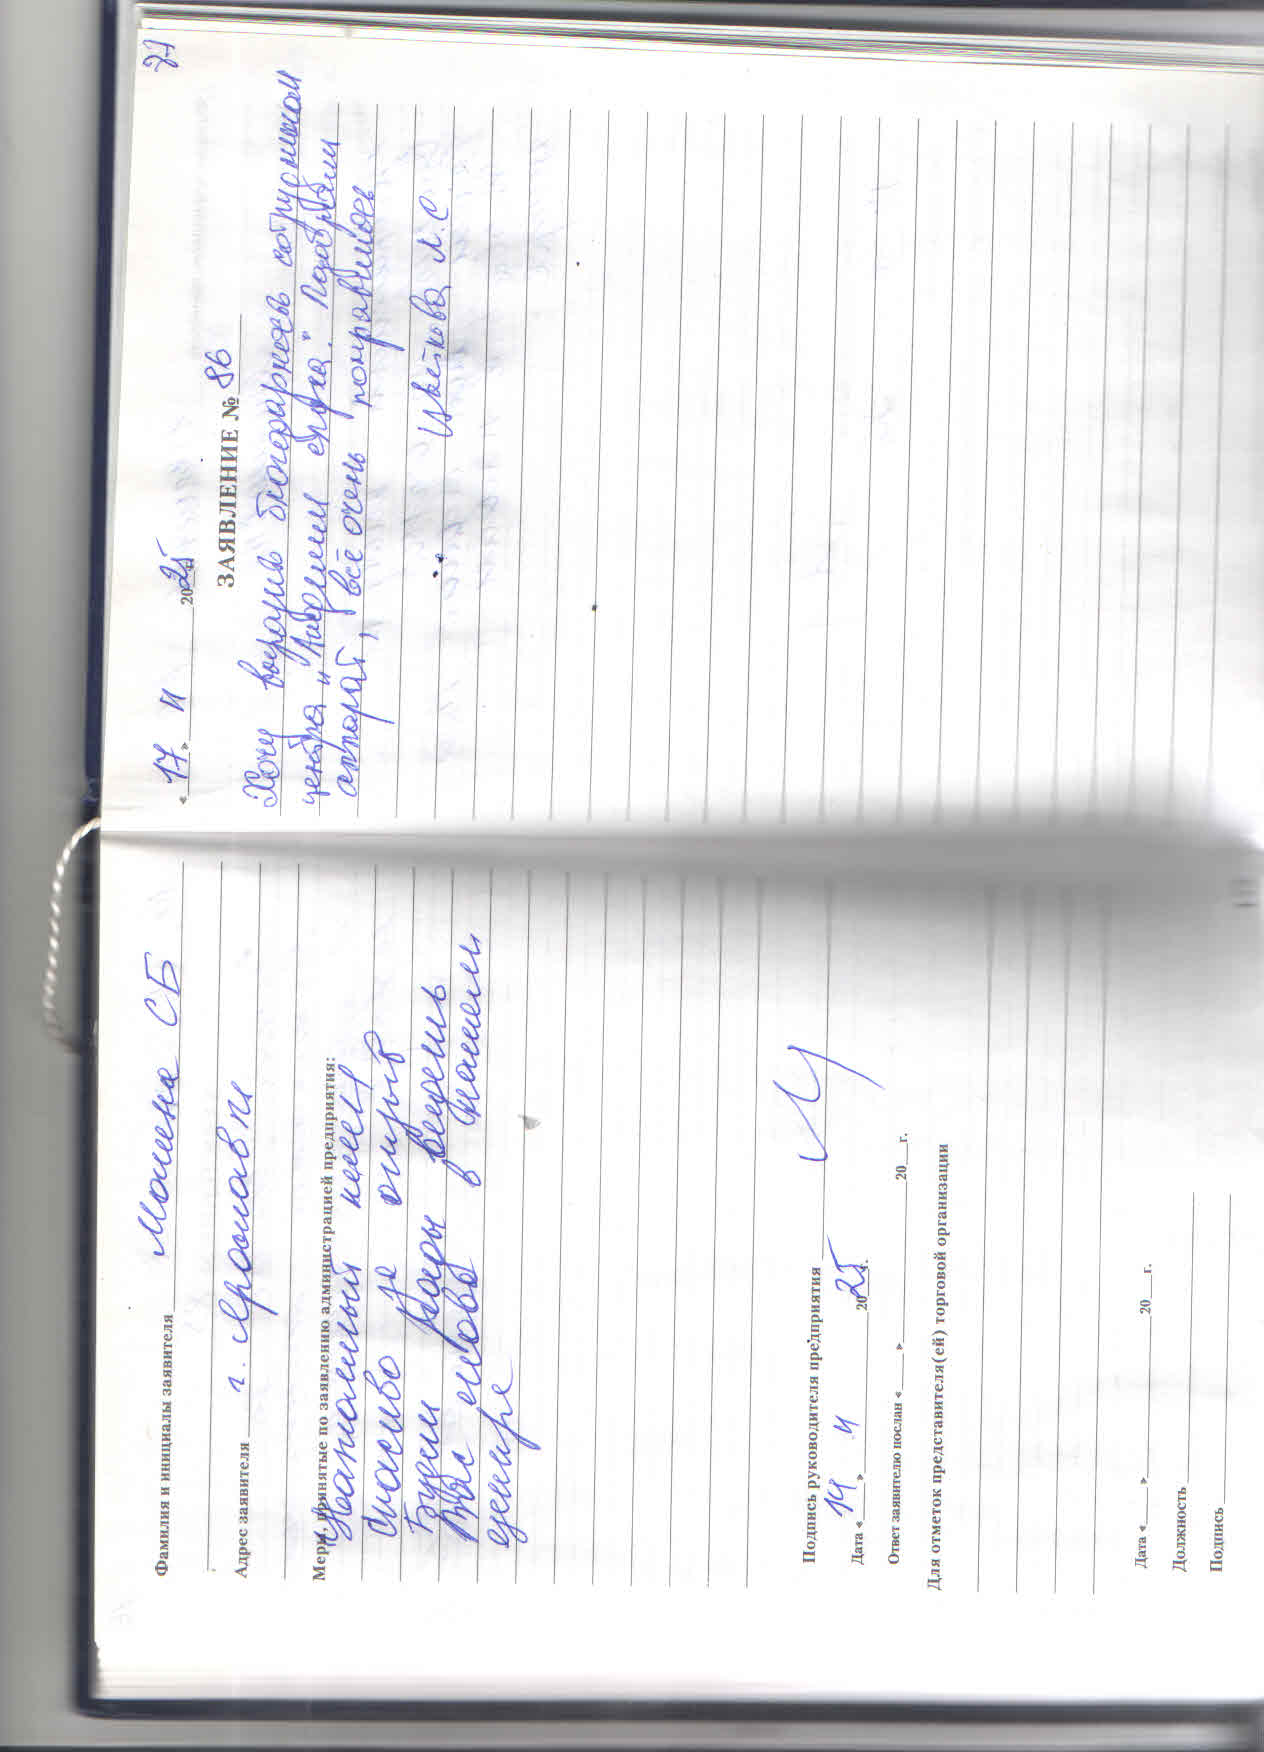 Фамилия и инициалы заявителя Мокина СБ
Адрес заявителя г. Ярославль
Меры, принятые по заявлению администрацией предприятия:
Уважаемый клиент
Спасибо за отзыв
Будем рады видеть
Вас снова в нашем
центре
Подпись руководителя предприятия
Дата «14» 11 2025г.
Ответ заявителю послан «___» 20___г.
Для отметок представителя(ей) торговой организации
Дата «___» 20___г.
Должность
Подпись
77
«17» 11 2025
ЗАЯВЛЕНИЕ № 86
Хочу выразить благодарность сотрудникам
центра и Подобрали
аппарат, всё очень понравилось
Цветкова Л.С